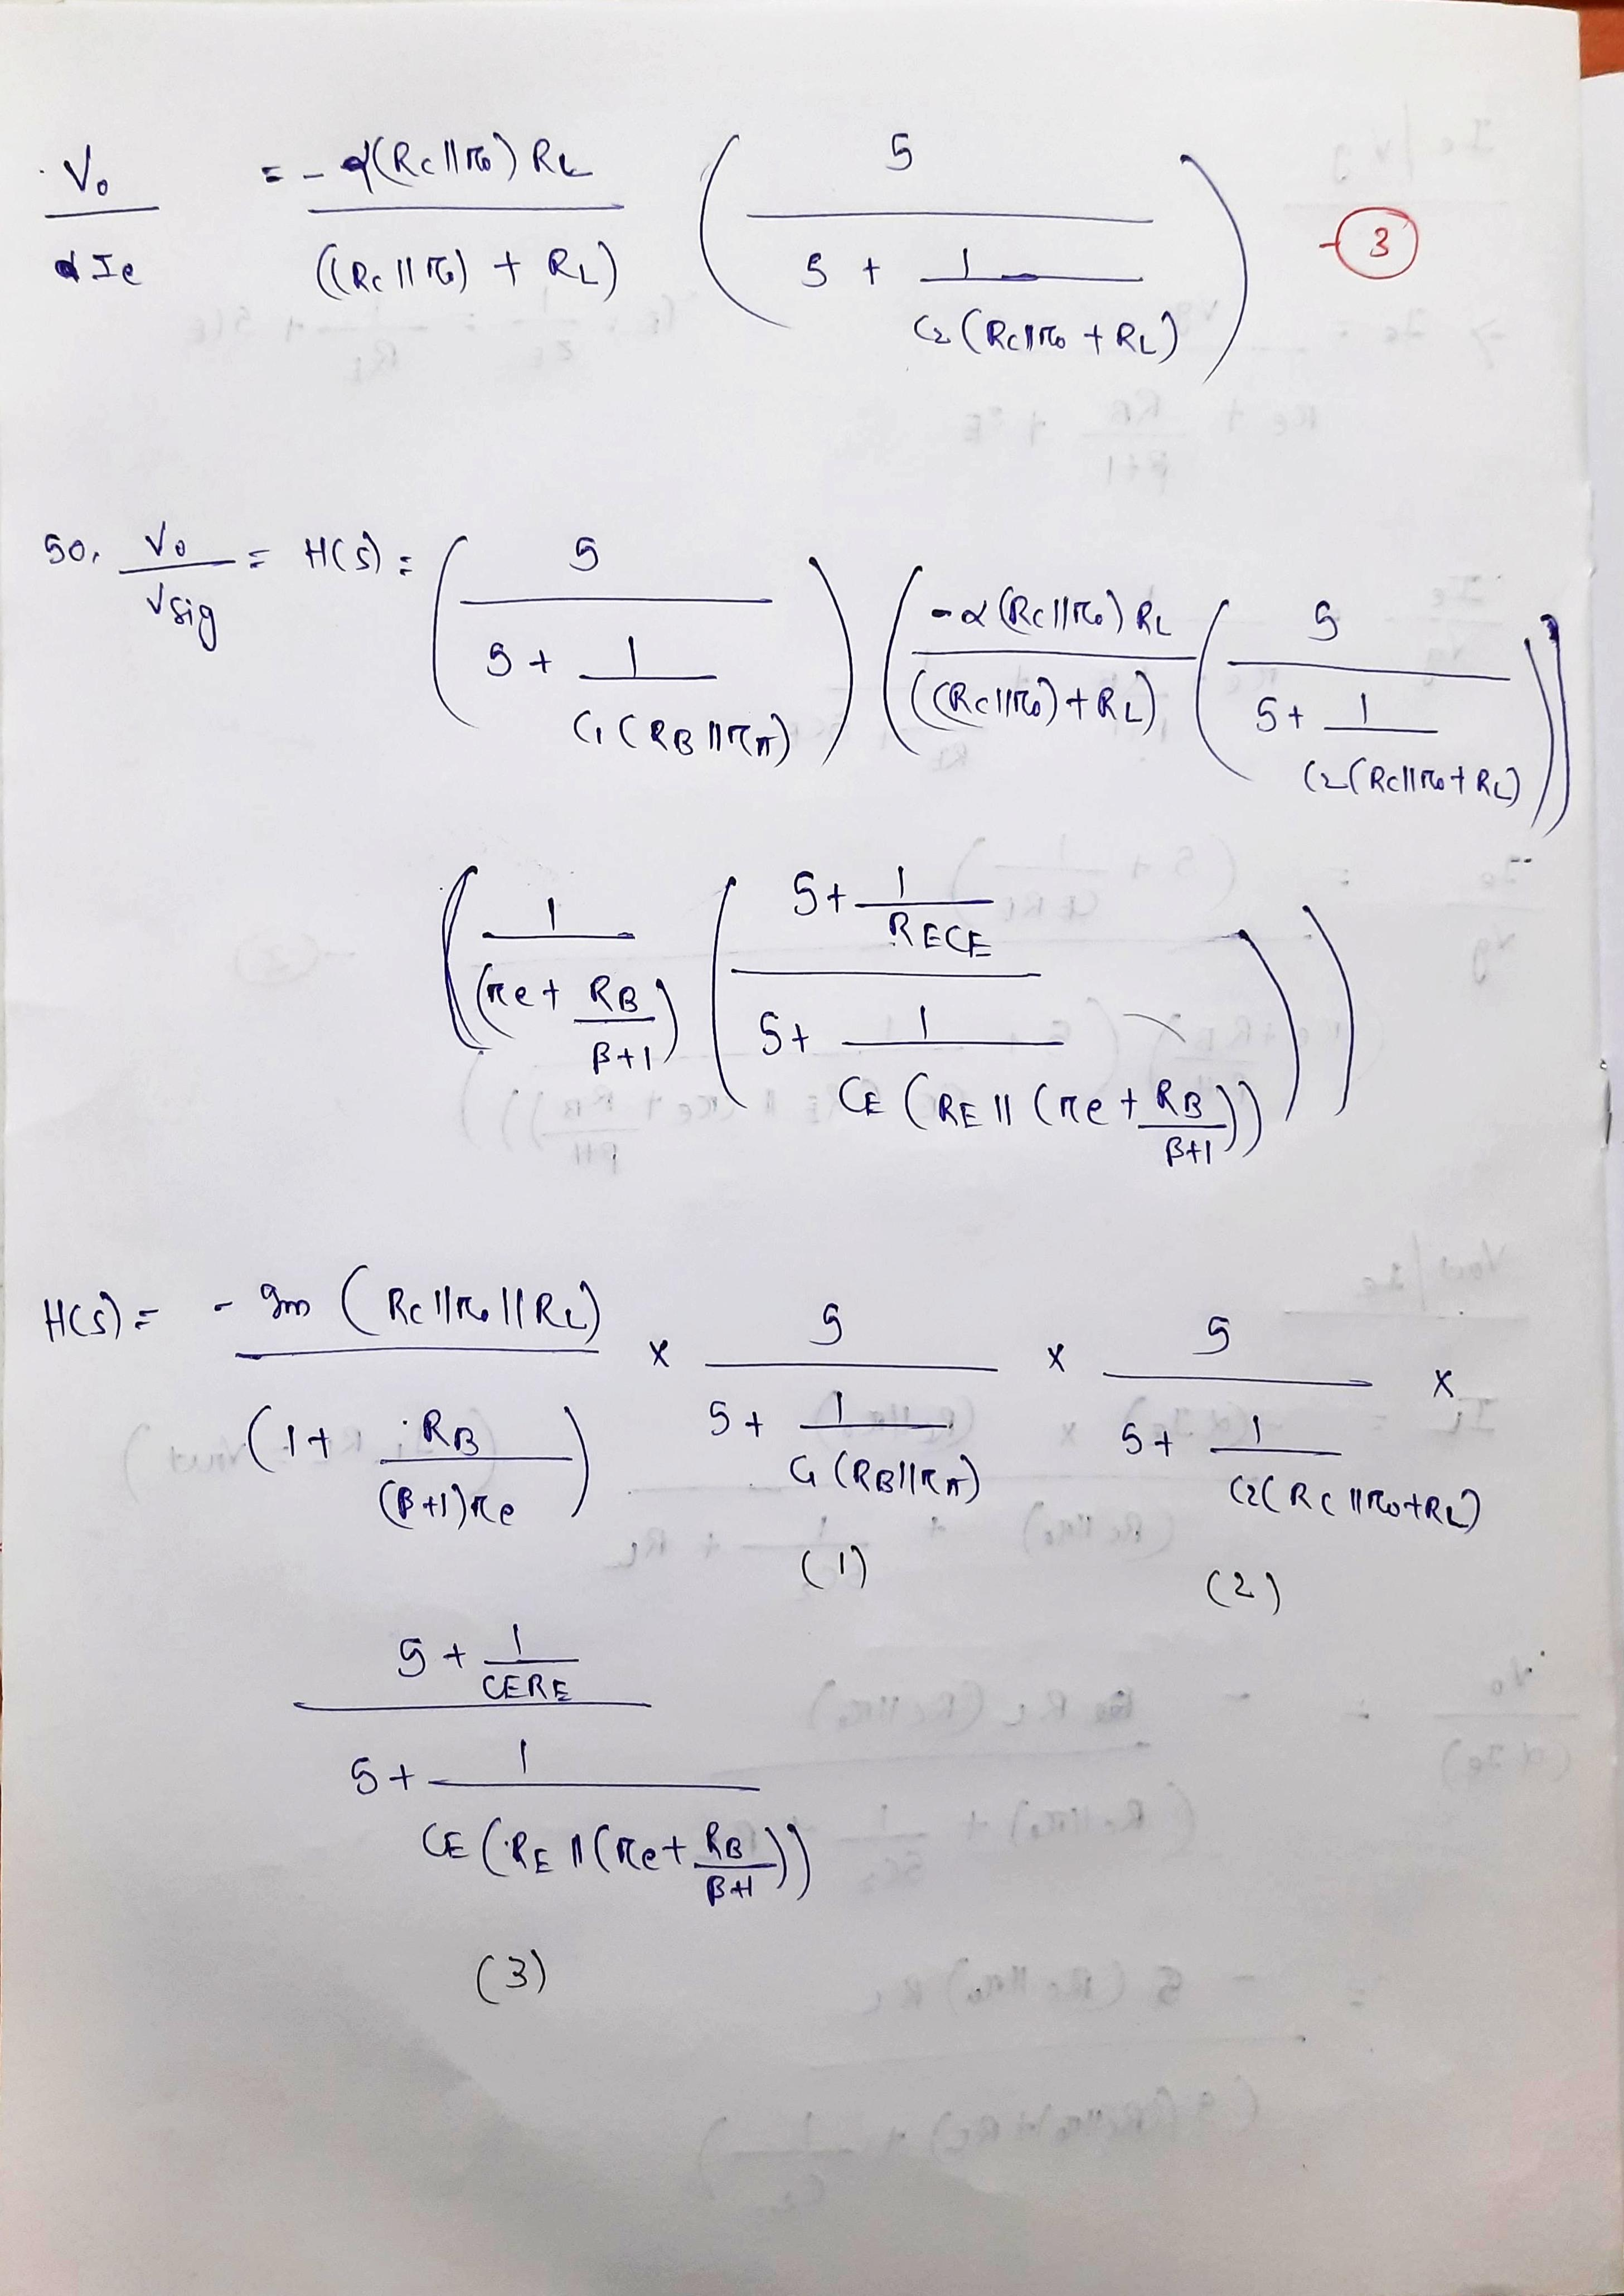 V₀/αIe = - α(Rc||r₀) RL / ((Rc||r₀) + RL) ( s / (s + 1/(C₂(Rc||r₀ + RL))) ) - ③
So, V₀/Vsig = H(s) = ( s / (s + 1/(C₁(RB||rπ))) ) ( -α(Rc||r₀) RL / ((Rc||r₀) + RL) ( s / (s + 1/(C₂(Rc||r₀ + RL))) ) )
( 1/(re + RB/(β+1)) ( (s + 1/(RECE)) / (s + 1/(CE(RE || (re + RB/(β+1))))) ) )
H(s) = - gm (Rc||r₀||RL) / (1 + RB/((β+1)re)) × s / (s + 1/(C₁(RB||rπ))) × s / (s + 1/(C₂(Rc||r₀+RL))) ×
(1) (2)
(s + 1/(CERE)) / (s + 1/(CE(RE || (re + RB/(β+1)))))
(3)